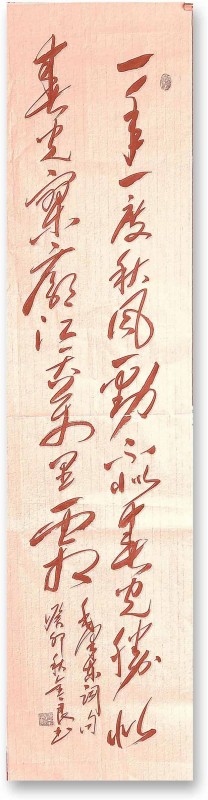 一年一度秋风劲不似春光勝似
春光寥廓江天万里霜
毛泽东词句
癸卯秋良书